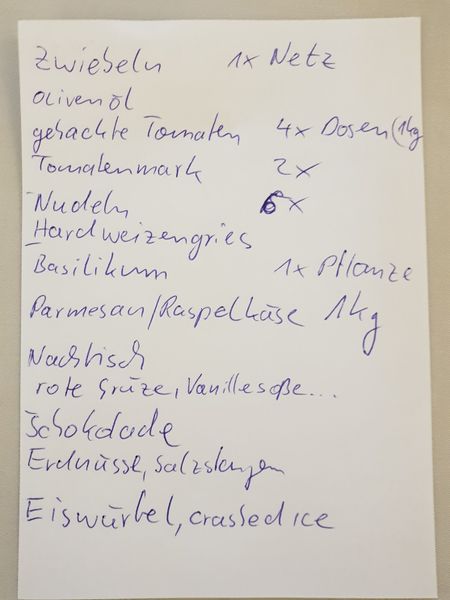 Zwiebeln 1x Netz
olivenöl
gehackte Tomaten 4x Dosen (1kg
Tomatenmark 2x
Nudeln 6x
Hardweizengries
Basilikum 1x Pflanze
Parmesan/Raspelkäse 1kg
Nachtisch
rote Grüze, Vanillesoße...
Schokolade
Erdnüsse, Salzstangen
Eiswürfel, crashed ice